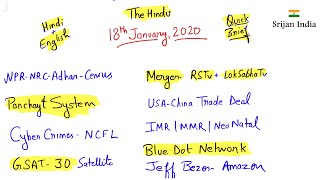 The Hindu
Hindi
+
English
18th January, 2020
Quick
Brief
Srijan India
NPR-NRC-Adhar-Census
Panchayt System
Cyber Crimes - NCFL
GSAT-30 Satellite
Merger - RSTv + LokSabhaTv
USA-China Trade Deal
IMR | MMR | NeoNatal
Blue Dot Network
Jeff Bezos - Amazon